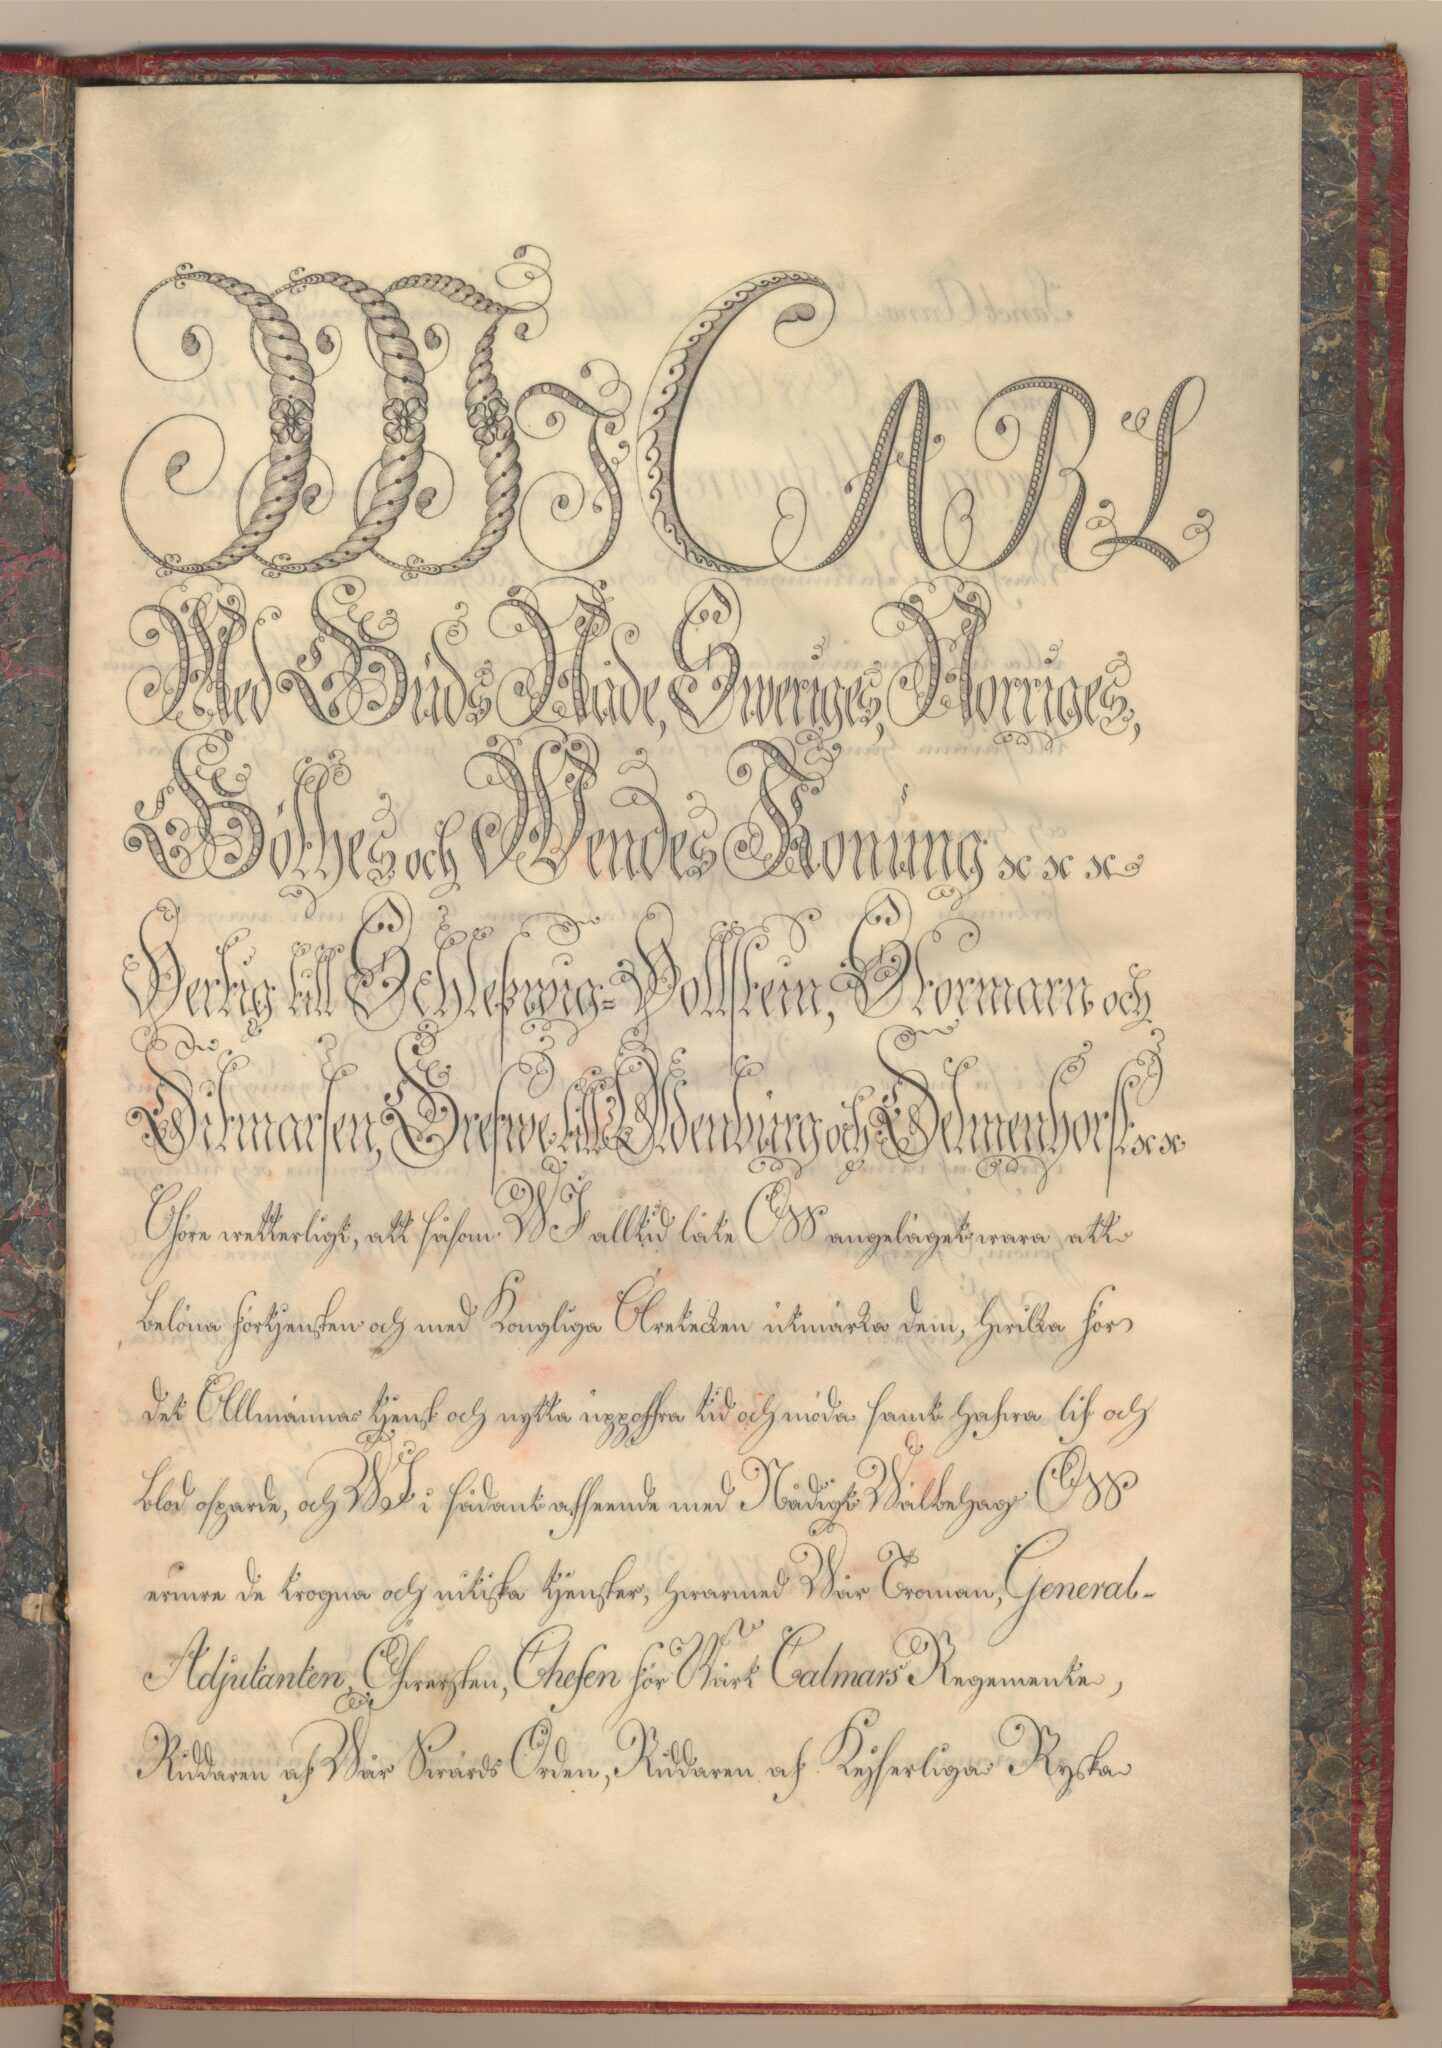 Wi CARL
Med Guds Nåde, Sweriges, Norriges,
Göthes och Wendes Konung
Hertig till Schleßwig-Hollstein, Stormarn och
Ditmarsen, Grefwe till Oldenburg och Delmenhorst
Göre wetterligt, att såsom WI alltid låte Oss angeläget wara att
belöna förtjensten och med Kongliga Äretecken utmärka dem, hwilka för
det Allmännas tjenst och nytta uppoffra tid och möda samt hafwa lif och
blod osparde, och WI i sådant afseende med Nådigt Wälbehag Oss
erinre de trogna och nitiska tjenster, hwarmed Wår Troman, General-
Adjutanten, Öfwersten, Chefen för Wårt Calmars Regemente,
Riddaren af Wår Swärds Orden, Riddaren af Kejserliga Ryska